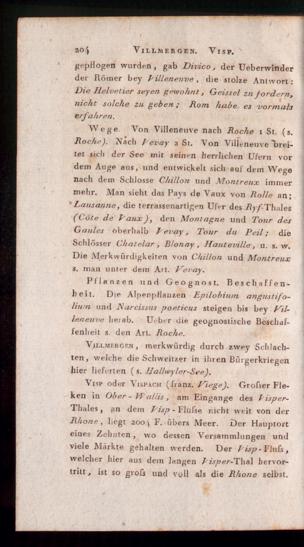 204 VILLMERGEN. VISP.
gepflogen wurden, gab Divico, der Ueberwinder
der Römer bey Villeneuve, die stolze Antwort:
Die Helvetier seyen gewohnt, Geissel zu fordern,
nicht solche zu geben; Rom habe es vormals
erfahren.
Wege. Von Villeneuve nach Roche 1 St. (s.
Roche). Nach Vevay 2 St. Von Villeneuve brei-
tet sich der See mit seinen herrlichen Ufern vor
dem Auge aus, und entwickelt sich auf dem Wege
nach dem Schlosse Chillon und Montreux immer
mehr. Man sieht das Pays de Vaux von Rolle an;
Lausanne, die terrassenartigen Ufer des Ryf-Thales
(Côte de Vaux), den Montagne und Tour des
Gaules oberhalb Vevay, Tour du Peil; die
Schlösser Chatelar, Blonay, Hauteville, u. s. w.
Die Merkwürdigkeiten von Chillon und Montreux
s. man unter dem Art. Vevay.
Pflanzen und Geognost. Beschaffen-
heit. Die Alpenpflanzen Epilobium angustifo-
lium und Narcissus poeticus steigen bis bey Vil-
leneuve herab. Ueber die geognostische Beschaf-
fenheit s. den Art. Roche.
VILLMERGEN, merkwürdig durch zwey Schlach-
ten, welche die Schweitzer in ihren Bürgerkriegen
hier lieferten (s. Hallwyler-See).
VISP oder VISPACH (franz. Viege). Großer Fle-
ken in Ober-Wallis, am Eingange des Visper-
Thales, an dem Visp-Flusse nicht weit von der
Rhone, liegt 2004 F. übers Meer. Der Hauptort
eines Zehnten, wo dessen Versammlungen und
viele Märkte gehalten werden. Der Visp-Fluß,
welcher hier aus dem langen Visper-Thal hervor-
tritt, ist so groß und voll als die Rhone selbst.